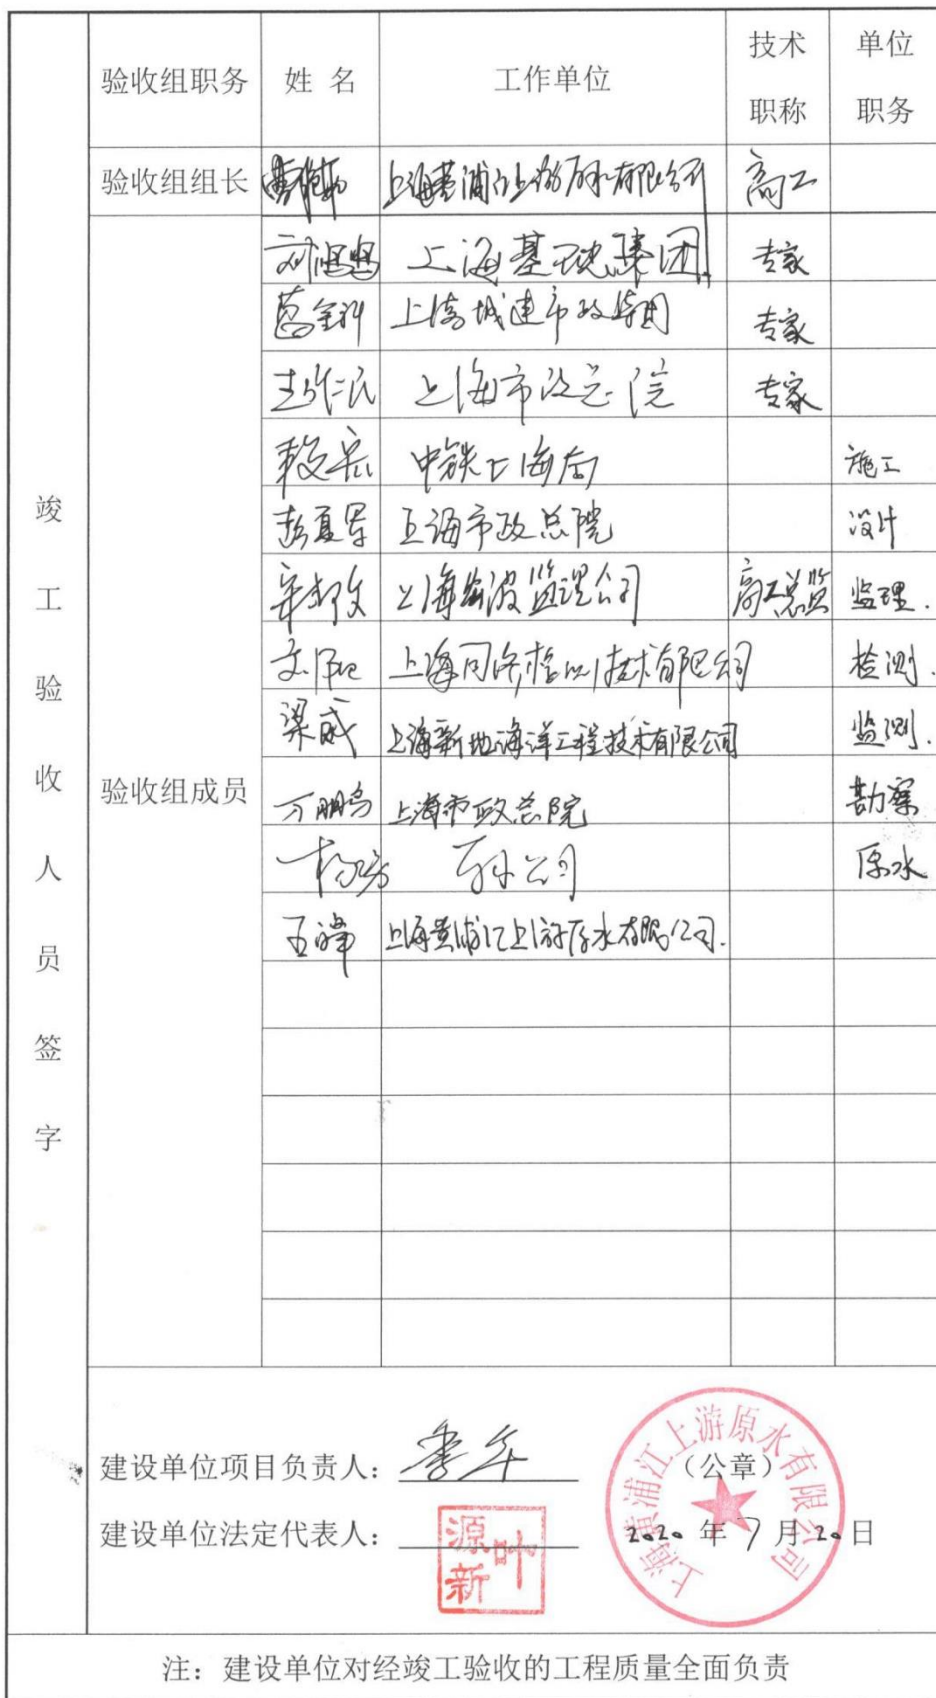 验收组职务 姓 名 工作单位 技术职称 单位职务
验收组组长 上海黄浦江上游原水有限公司 高工
上海基础集团 专家
葛金科 上海城建市政集团 专家
上海市政总院 专家
中铁上海局 施工
彭夏军 上海市政总院 设计
上海宏波监理公司 高工总监 监理.
上海同济检测技术有限公司 检测.
梁威 上海新地海洋工程技术有限公司 监测.
万鹏 上海市政总院 勘察
原水公司 原水
王峰 上海黄浦江上游原水有限公司.
验收组成员
竣工验收人员签字
建设单位项目负责人:
(公章)
建设单位法定代表人:
叶源新
上海黄浦江上游原水有限公司
2020 年 7 月 20 日
注: 建设单位对经竣工验收的工程质量全面负责